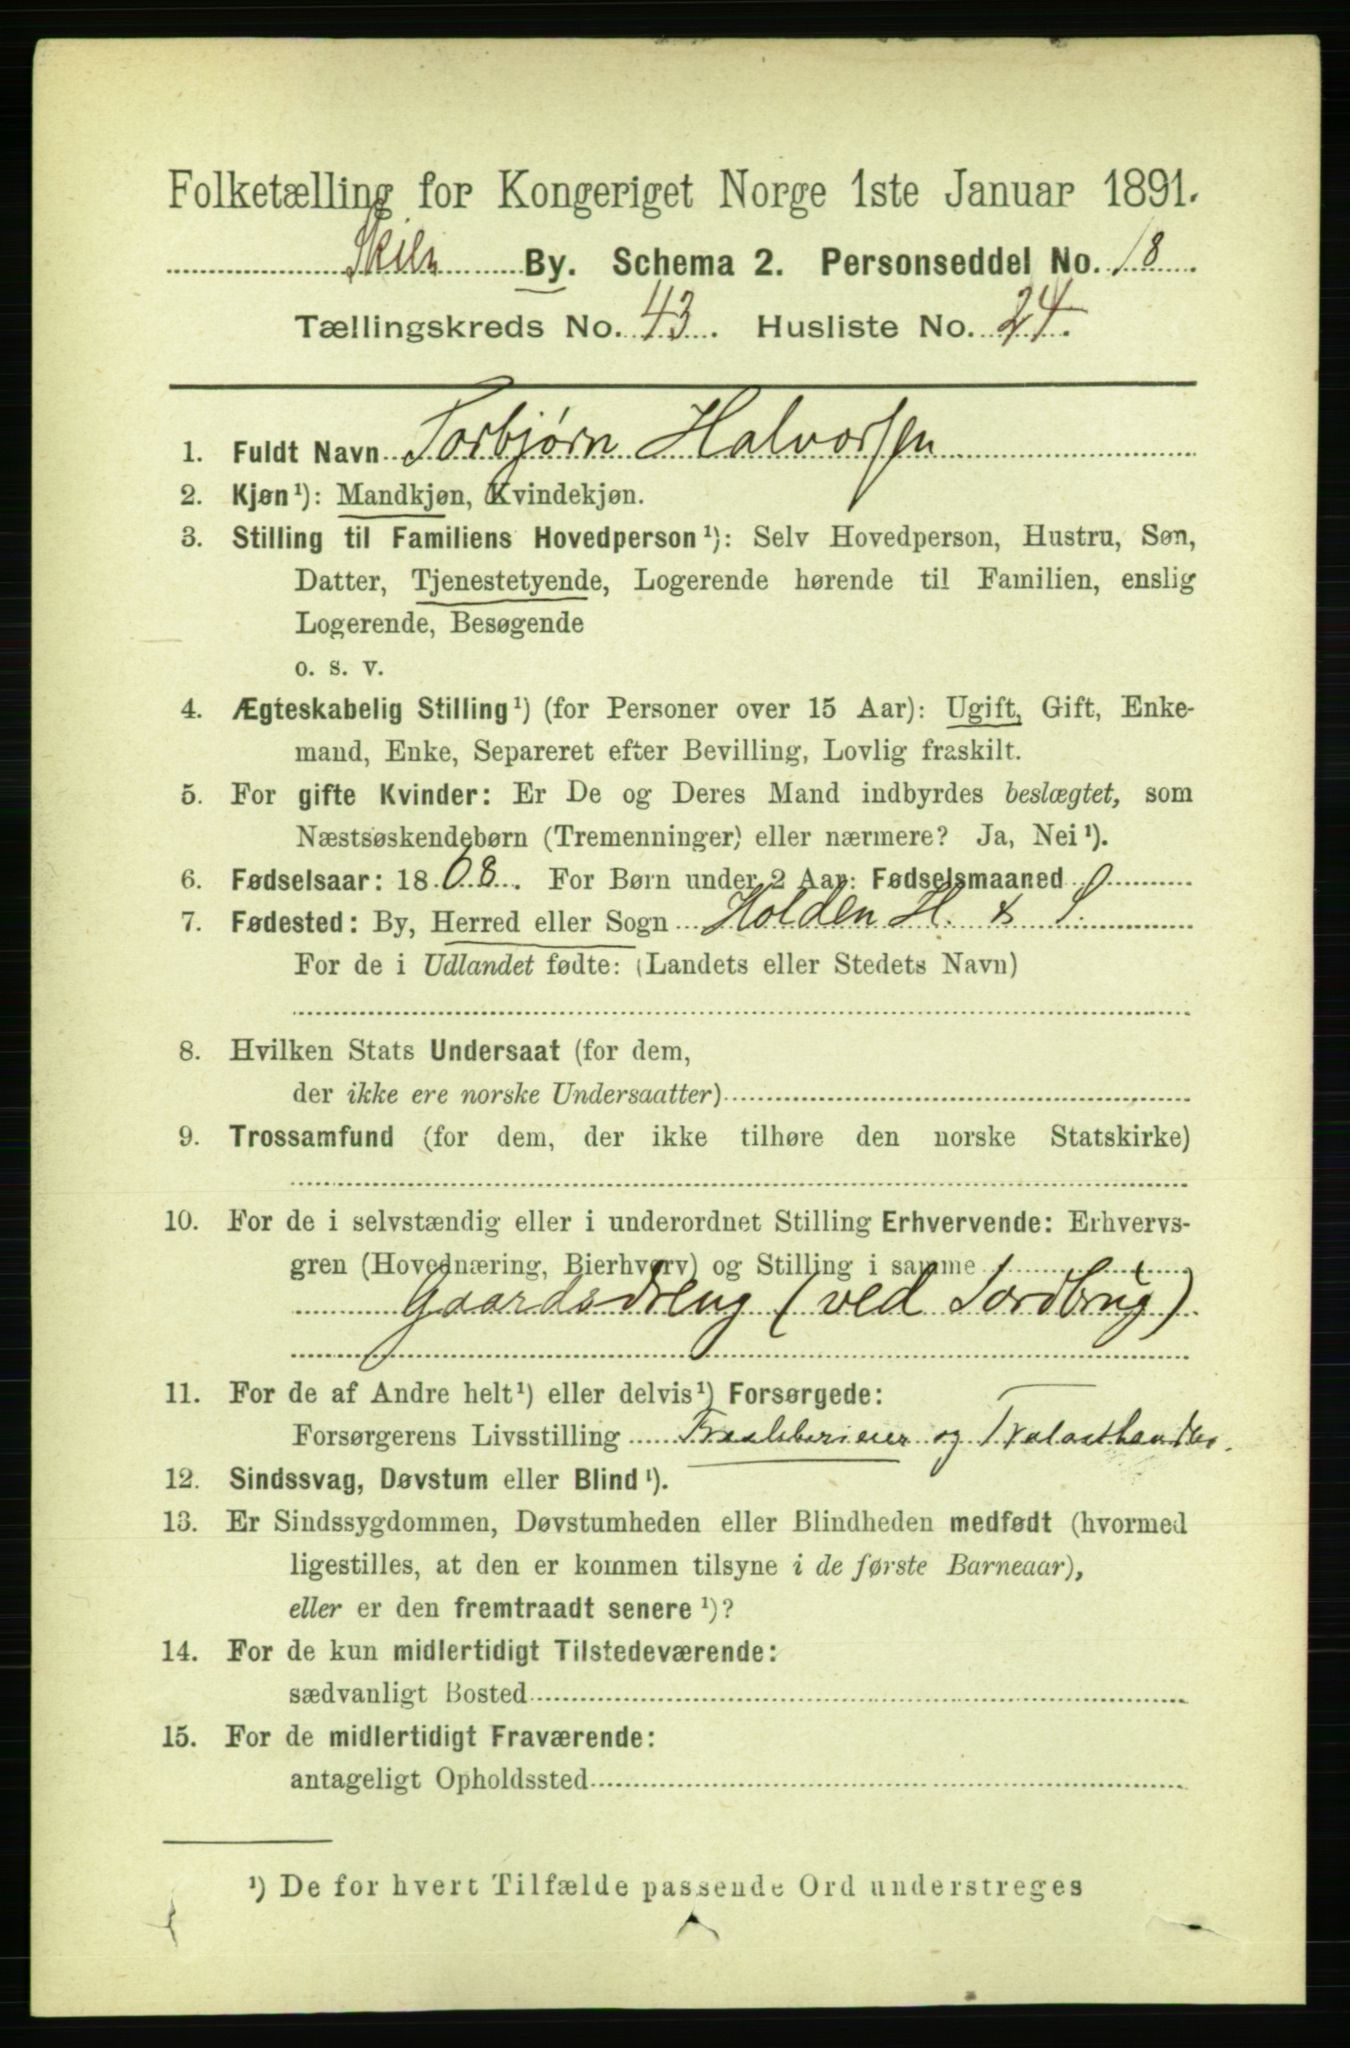 Folketælling for Kongeriget Norge 1ste Januar 1891.
Skien By. Schema 2. Personseddel No. 18
Tællingskreds No. 43. Husliste No. 24.
1. Fuldt Navn Torbjørn Halvorsen
2. Kjøn¹): Mandkjøn, Kvindekjøn.
3. Stilling til Familiens Hovedperson¹): Selv Hovedperson, Hustru, Søn,
Datter, Tjenestetyende, Logerende hørende til Familien, enslig
Logerende, Besøgende
o. s. v.
4. Ægteskabelig Stilling¹) (for Personer over 15 Aar): Ugift, Gift, Enke-
mand, Enke, Separeret efter Bevilling, Lovlig fraskilt.
5. For gifte Kvinder: Er De og Deres Mand indbyrdes beslægtet, som
Næstsøskendebørn (Tremenninger) eller nærmere? Ja, Nei¹).
6. Fødselsaar: 1868. For Børn under 2 Aar: Fødselsmaaned 0
7. Fødested: By, Herred eller Sogn Holden H. & S.
For de i Udlandet fødte: (Landets eller Stedets Navn)
8. Hvilken Stats Undersaat (for dem,
der ikke ere norske Undersaatter)
9. Trossamfund (for dem, der ikke tilhøre den norske Statskirke)
10. For de i selvstændig eller i underordnet Stilling Erhvervende: Erhvervs-
gren (Hovednæring, Bierhverv) og Stilling i samme
Gaardsdreng (ved Jordbrug)
11. For de af Andre helt¹) eller delvis¹) Forsørgede:
Forsørgerens Livsstilling og Trælasthandler.
12. Sindssvag, Døvstum eller Blind¹).
13. Er Sindssygdommen, Døvstumheden eller Blindheden medfødt (hvormed
ligestilles, at den er kommen tilsyne i de første Barneaar),
eller er den fremtraadt senere¹)?
14. For de kun midlertidigt Tilstedeværende:
sædvanligt Bosted
15. For de midlertidigt Fraværende:
antageligt Opholdssted
¹) De for hvert Tilfælde passende Ord understreges